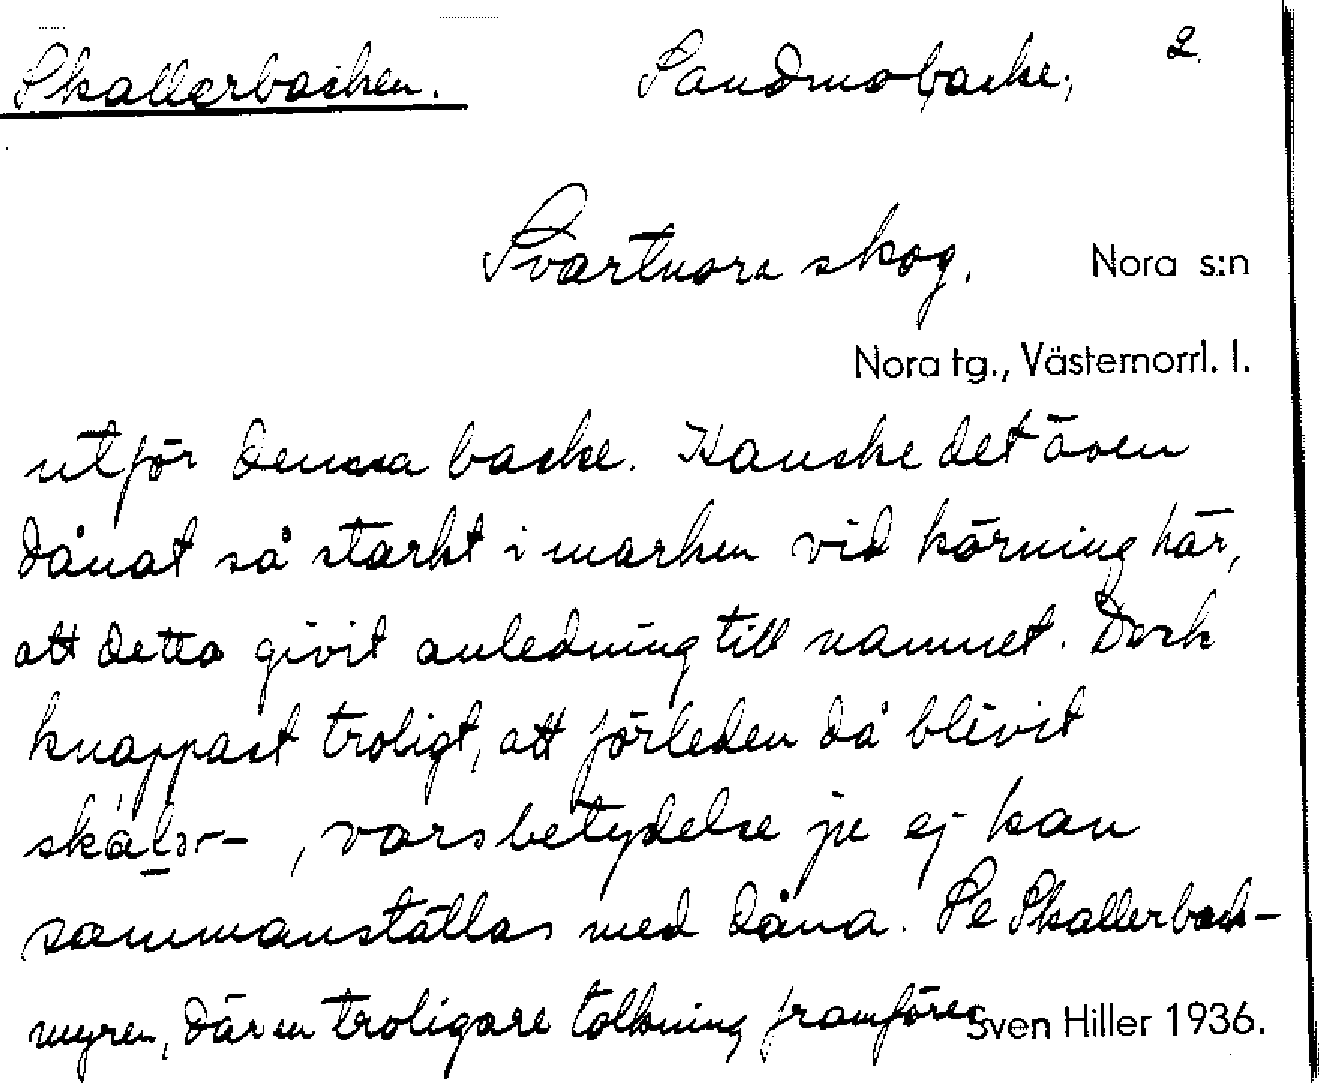 Skallerbacken. Sandmobacke, 2.
Svartnora skog. Nora s:n
Nora tg., Västernorrl. l.
utför denna backe. Kanske det även
dånat så starkt i marken vid körning här,
att detta givit anledning till namnet. Dock
knappast troligt, att förleden då blivit
skálər-, vars betydelse ju ej kan
sammanställas med dåna. Se Skallerback-
myren, där en troligare tolkning framföres
Sven Hiller 1936.